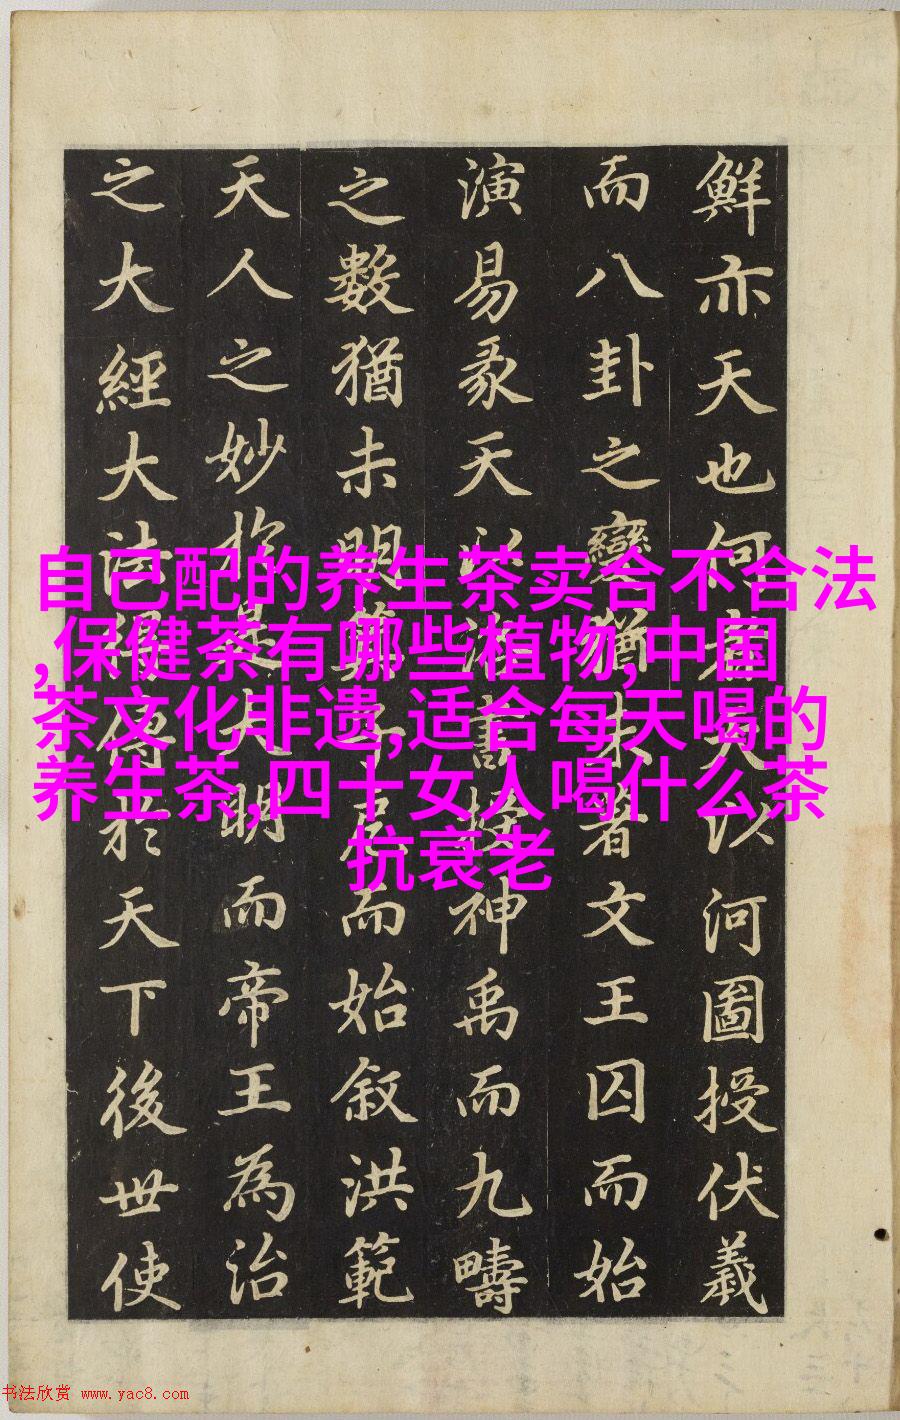 自己配的养生茶卖合不合法
,保健茶有哪些植物,中国
茶文化非遗,适合每天喝的
养生茶,四十女人喝什么茶
抗衰老
鮮亦天也何者天以河圖授伏羲
而八卦之變猶未著文王囚而始
演易彖天以洛書授神禹而九疇
之數猶未明箕子辱而始叙洪範
天人之妙於是大明而帝王為治
之大經大法得傳於天下後世使
书法欣赏 www.yac8.com